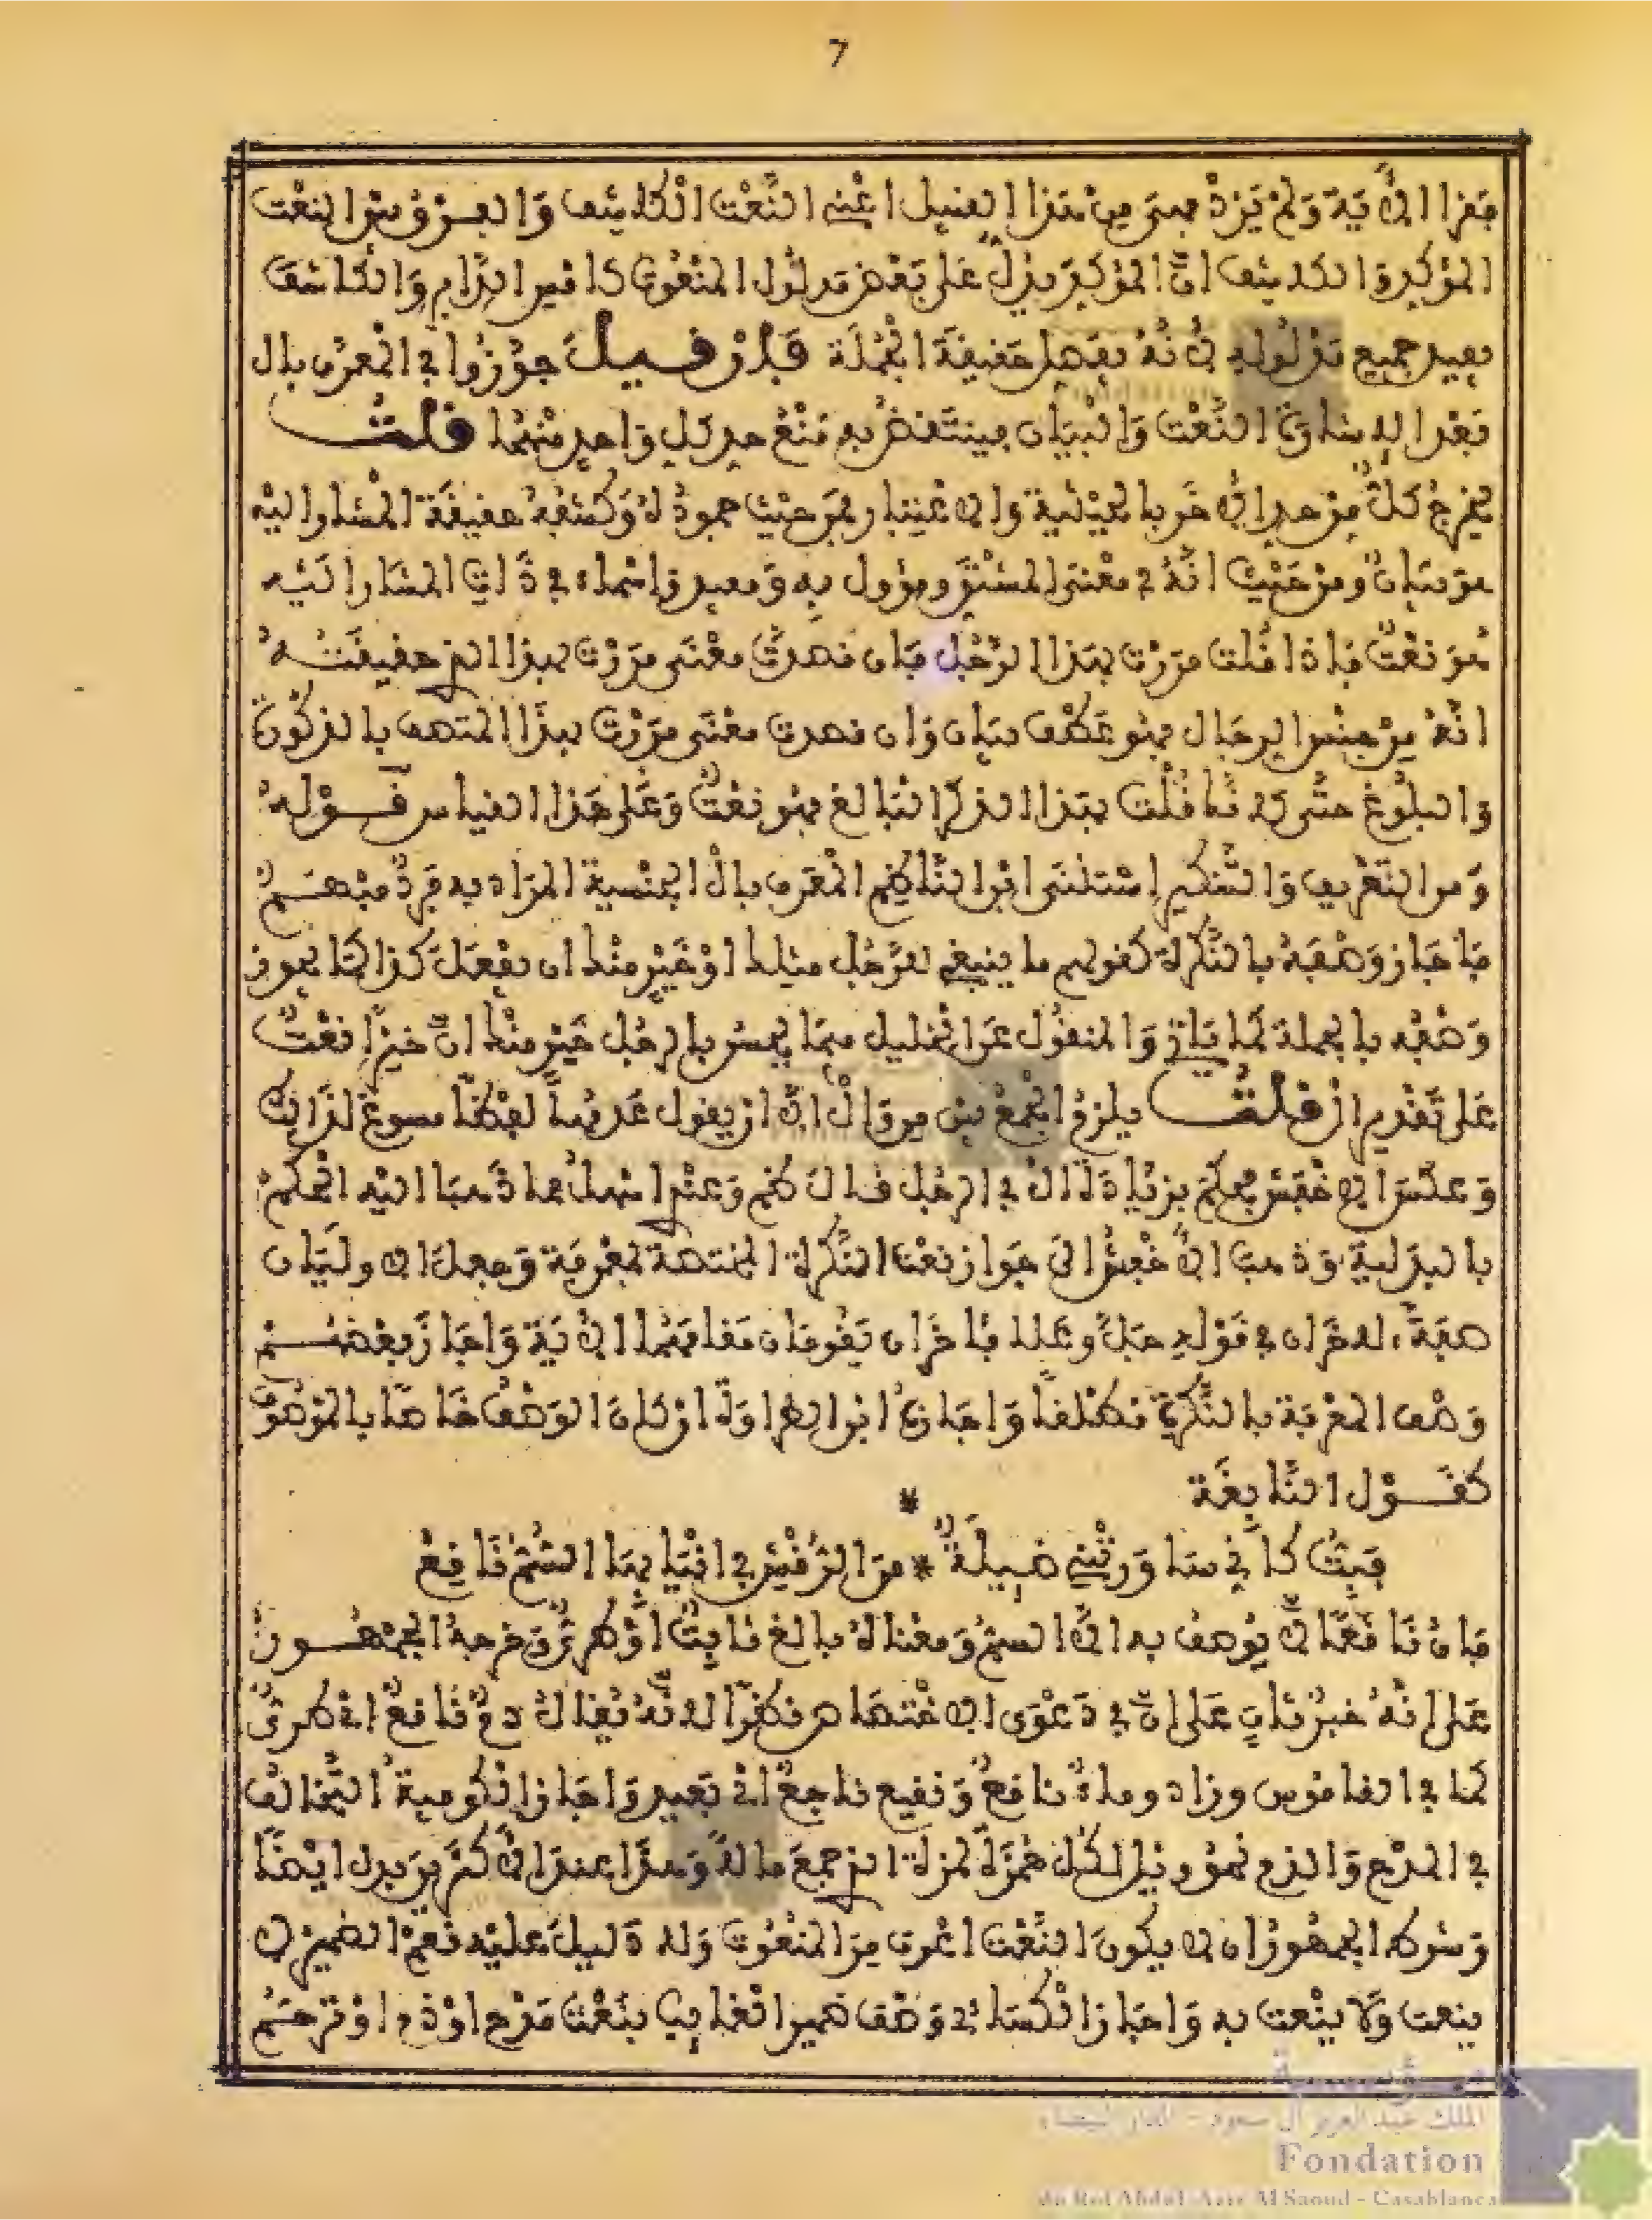 7
هذا الآية ولم يزد فهي من هذا القبيل أعني النعت الكاشف والفرق بين النعت
المؤكد والكاشف أن المؤكد يدل على بعض مدلول المنعوت كأمس الدابر والكاشف
يفيد جميع مدلوله لأنه يفصل حقيقة الجملة فإن قيل جوزوا في المعرف بال
بعد الإشارة النعت والبيان فينتقض به منع حد كل واحد منهما قلت
يخرج كل من حد الآخر بالحيثية والاعتبار فمن حيث جموده وكشفه حقيقة المشار إليه
هو بيان ومن حيث أنه في معنى المشتق ومؤول به ومفيد في ذات المشار إليه
هو نعت فإذا قلت مررت بهذا الرجل فإن قصدت معنى مررت بهذا الذي حقيقته
أنه من جنس الرجال فهو عطف بيان وإن قصدت معنى مررت بهذا المتصف بالذكورة
والبلوغ حتى كأنما قلت بهذا الذكر البالغ فهو نعت وعلى هذا القياس قوله
ومن التعريف والتنكير استثنى ابن الناظم المعرف بال الجنسية المراد به فرد مبهم
فأجاز وصفه بالنكرة كقولهم ما ينبغي للرجل مثلك أو خير منك أن يفعل كذا كما يجوز
وصفه بالجملة كما يأتي والمنقول عن الخليل فيما يحسن بالرجل خير منك أن خيرا نعت
على تقدير ال قلت يلزم الجمع بين من وال إلا أن يقول عدمها لفظا مسوغ لذلك
وعكس الأخفش فحكم بزيادة ال في الرجل قال وعندي أسهل مما ذهبا إليه الحكم
بالبدلية وذهب الأخفش إلى جواز نعت النكرة المختصة بالمعرفة وجعل الأوليان
صفة لآخران في قوله جل وعلا فآخران يقومان مقامهما الآية وأجاز بعضهم
وصف المعرفة بالنكرة مطلقا وأجازه ابن الطراوة إن كان الوصف خاصا بالموصوف
كقول النابغة
فبت كأني ساورتني ضئيلة * من الرقش في أنيابها السم ناقع
فإن ناقعا لا يوصف به إلا السم ومعناه بالغ ثابت أو طري وخرجه الجمهور
على أنه خبر ثان على أن في دعوى الاختصاص نظرا لأنه يقال دم ناقع أي طري
كما في القاموس وزاد وماء ناقع ونقيع ناجع أي بعيد وأجاز الكوفية التخالف
في المدح والذم نحو ويل لكل همزة لمزة الذي جمع مالا وهذا عند الأكثر بدل أيضا
وشرط الجمهور أن لا يكون النعت أعرف من المنعوت ولا دليل عليه نعم الضمير لا
ينعت ولا ينعت به وأجاز الكسائي وصف ضمير الغائب بنعت مدح أو ذم أو ترحم
مؤسسة
الملك عبد العزيز آل سعود - الدار البيضاء
Fondation
du Roi Abdul-Aziz Al Saoud - Casablanca